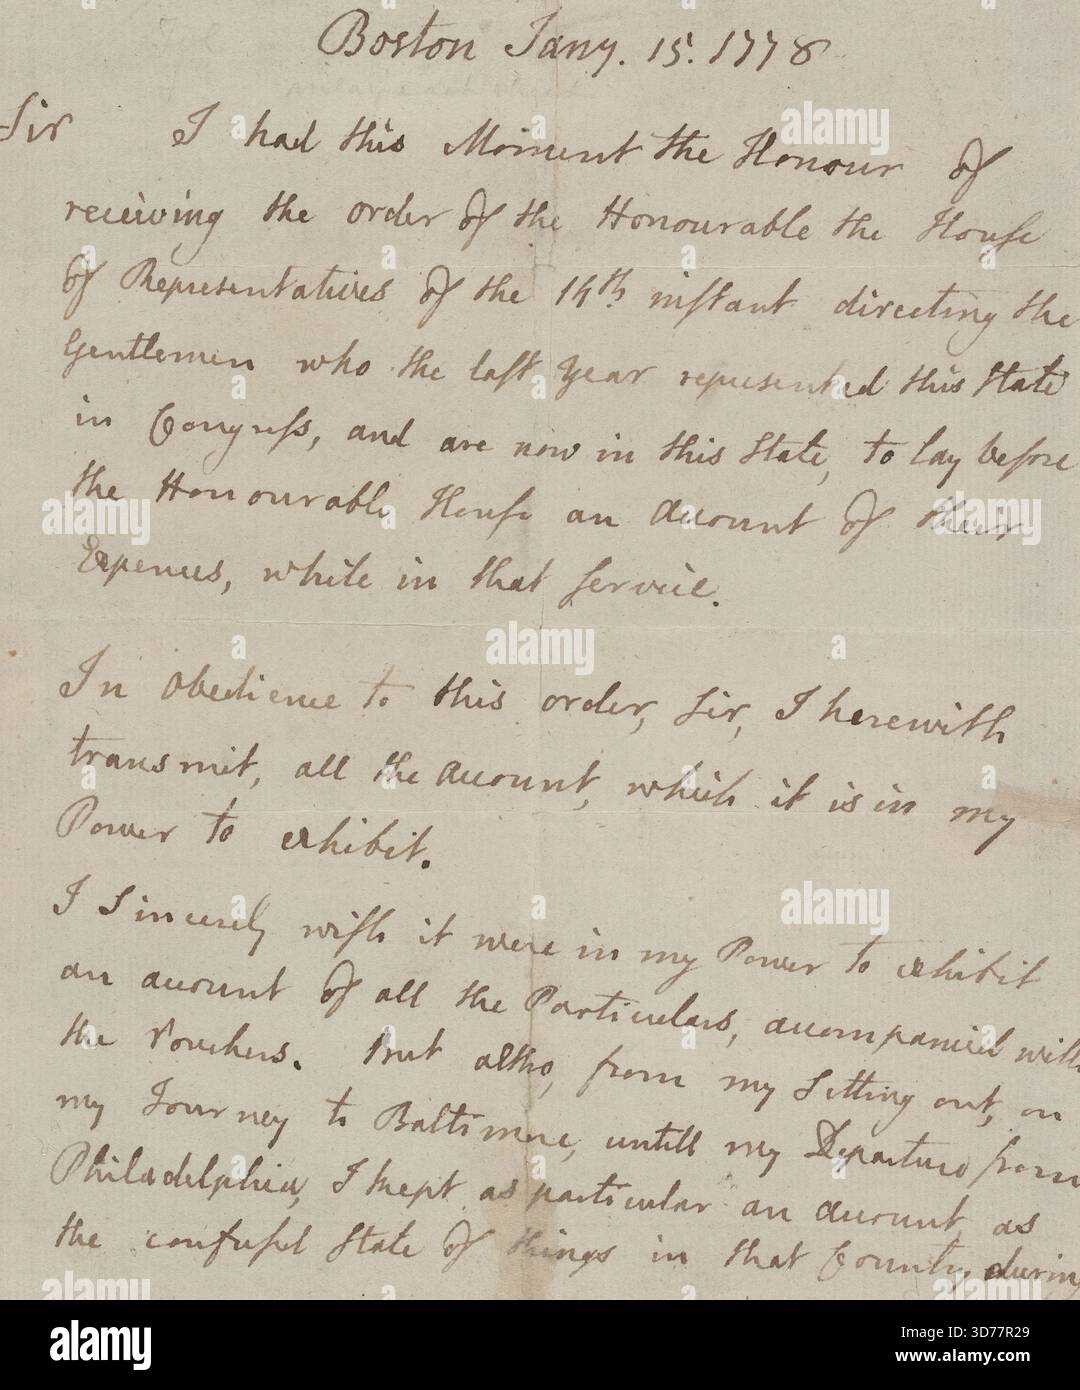 Boston Jany. 15. 1778
Sir I had this Moment the Honour of
receiving the order of the Honourable the House
of Representatives of the 14th instant directing the
Gentlemen who the last Year represented this State
in Congress, and are now in this State, to lay before
the Honourable House an account of their
Expences, while in that Service.
In Obedience to this order, Sir, I herewith
transmit, all the Account, which it is in my
Power to exhibit.
I Sincerely wish it were in my Power to exhibit
an account of all the Particulars, accompanied with
the Vouchers. But altho, from my Setting out, on
my Journey to Baltimore, untill my Departure from
Philadelphia, I kept as particular an account, as
the confused State of things in that Country during
alamy
Image ID: 3D77R29
www.alamy.com